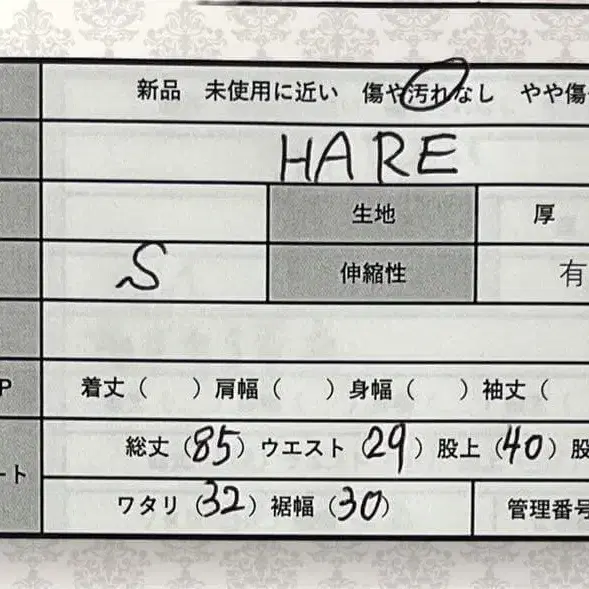 新品 未使用に近い 傷や汚れなし やや傷
HARE
生地 厚
S 伸縮性 有
P 着丈( )肩幅( )身幅( )袖丈(
総丈(85)ウエスト 29)股上(40)股
ート
ワタリ(32)裾幅(30) 管理番号